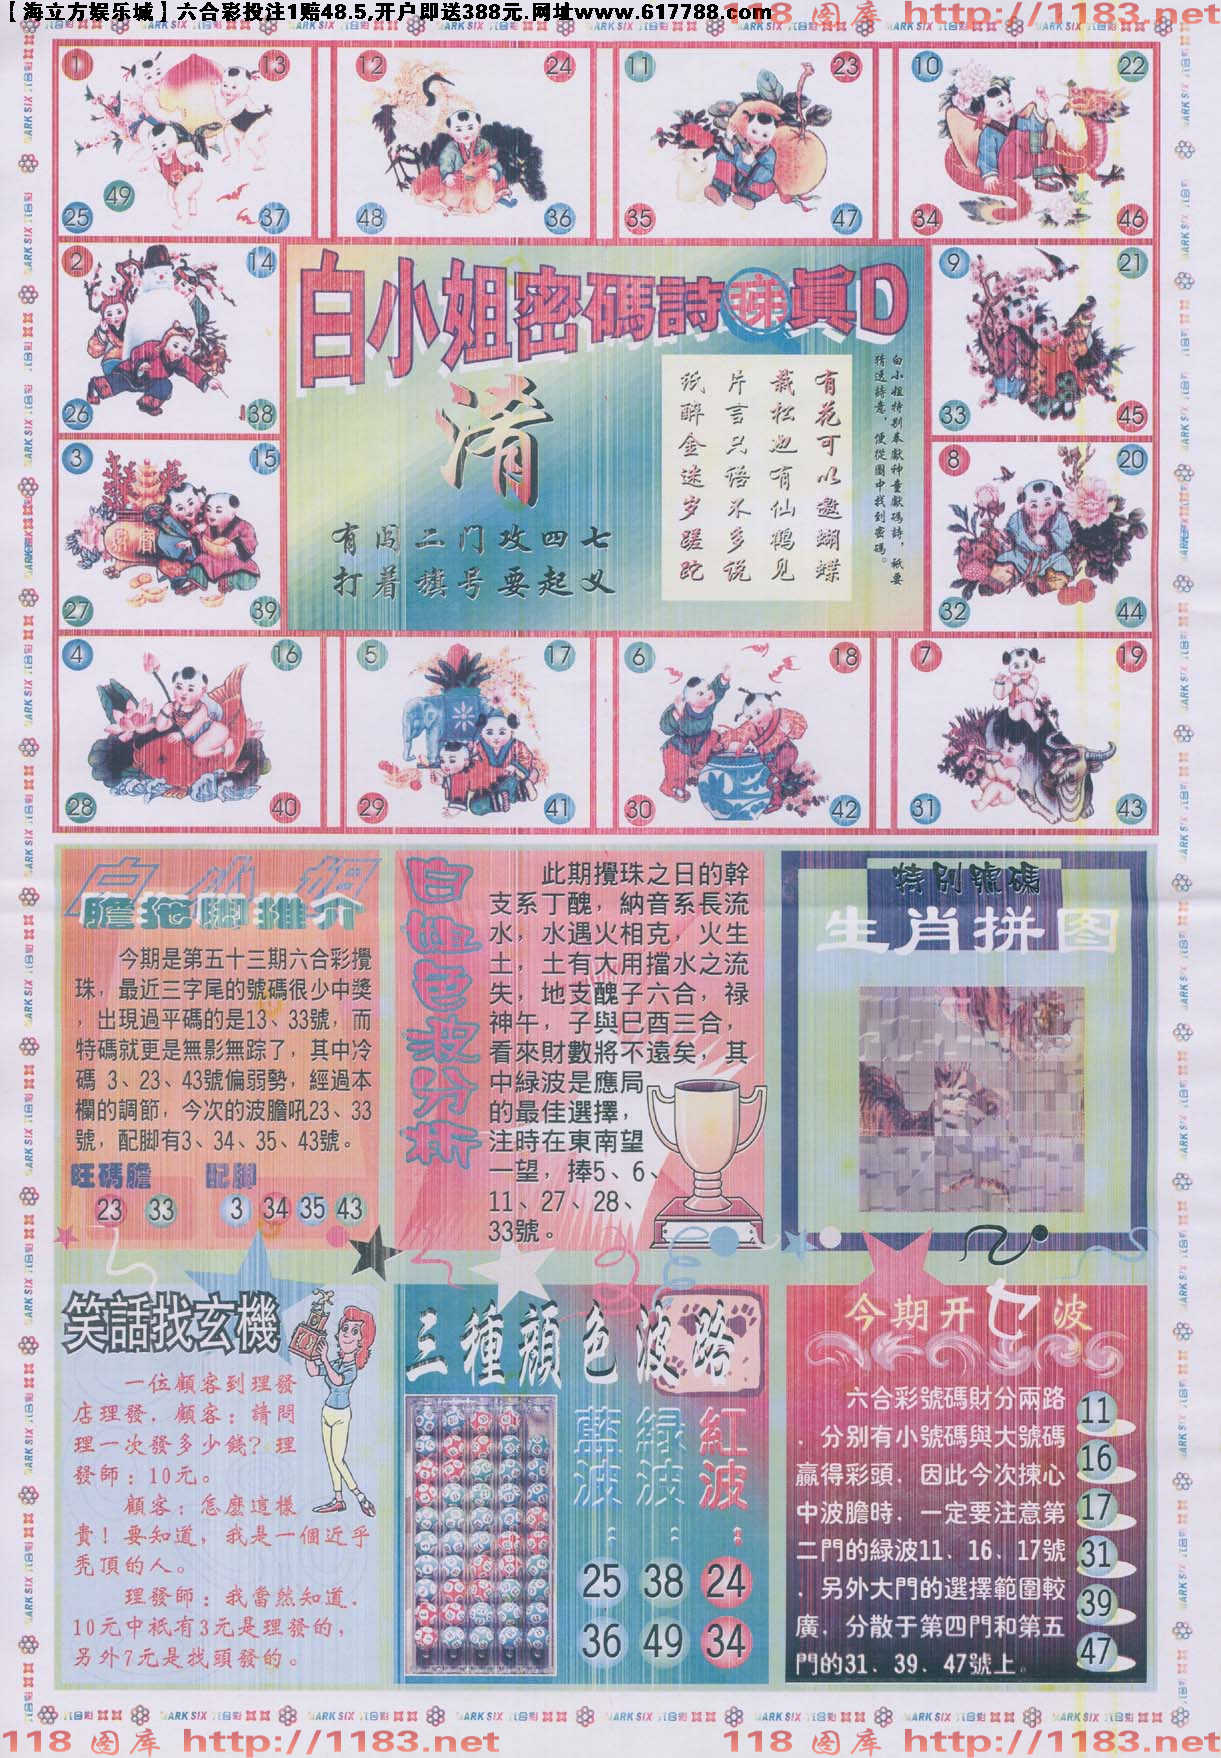 【海立方娱乐城】六合彩投注1赔48.5,开户即送388元.网址www.617788.com
118 图库 http://1183.net
1
13
49
25
37
12
24
48
36
11
23
35
47
10
22
34
46
2
14
26
38
9
21
33
45
3
15
27
39
8
20
32
44
4
16
28
40
5
17
29
41
6
18
30
42
7
19
31
43
白小姐密碼詩 真D
淆
有闯二门攻四七
打着旗号要起义
白小姐特别奉獻神童獻碼詩，祇要
猜透詩意，便從圖中找到密碼。
有花可以邀蝴蝶
栽松也有仙鹤见
片言只语不多说
纸醉金迷岁蹉跎
白小姐
膽拖脚推介
今期是第五十三期六合彩攪
珠，最近三字尾的號碼很少中獎
，出現過平碼的是13、33號，而
特碼就更是無影無踪了，其中冷
碼 3、23、43號偏弱勢，經過本
欄的調節，今次的波膽吼23、33
號，配脚有3、34、35、43號。
旺碼膽 配脚
23 33 3 34 35 43
白姐色波分析
此期攪珠之日的幹
支系丁醜，納音系長流
水，水遇火相克，火生
土，土有大用擋水之流
失，地支醜子六合，禄
神午，子與巳酉三合，
看來財數將不遠矣，其
中緑波是應局
的最佳選擇，
注時在東南望
一望，捧5、6、
11、27、28、
33號。
特别號碼
生肖拼图
笑話找玄機
一位顧客到理發
店理發．顧客：請問
理一次發多少錢？理
發師：10元。
顧客：怎麽這樣
貴！要知道，我是一個近乎
秃頂的人。
理發師：我當然知道．
10元中祇有3元是理發的，
另外7元是找頭發的。
三種顔色波路
藍波：
25
36
緑波：
38
49
紅波：
24
34
今期开七波
六合彩號碼財分兩路
．分别有小號碼與大號碼
贏得彩頭．因此今次揀心
中波膽時．一定要注意第
二門的緑波11、16、17號
．另外大門的選擇範圍較
廣．分散于第四門和第五
門的31、39、47號上。
11
16
17
31
39
47
118 图库 http://1183.net
118 图库 http://1183.net